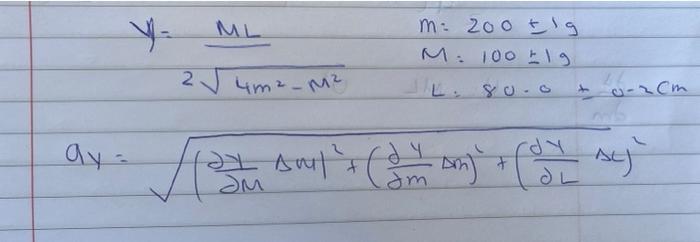 y = ML / 2√4m² - M²
m: 200 ± 1g
M: 100 ± 1g
L: 80.0 ± 0.2cm
ay = √(∂Y/∂M ΔM)² + (∂Y/∂m Δm)² + (∂Y/∂L ΔL)²